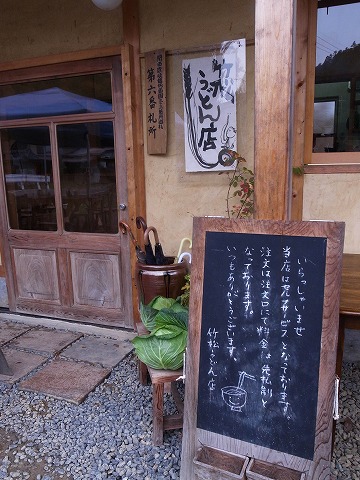 第六番札所
うどん店
いらっしゃいませ
当店はセルフサービスとなっております。
注文は注文口にて料金は先払制と
なっております。
いつもありがとうございます。
竹松うどん店